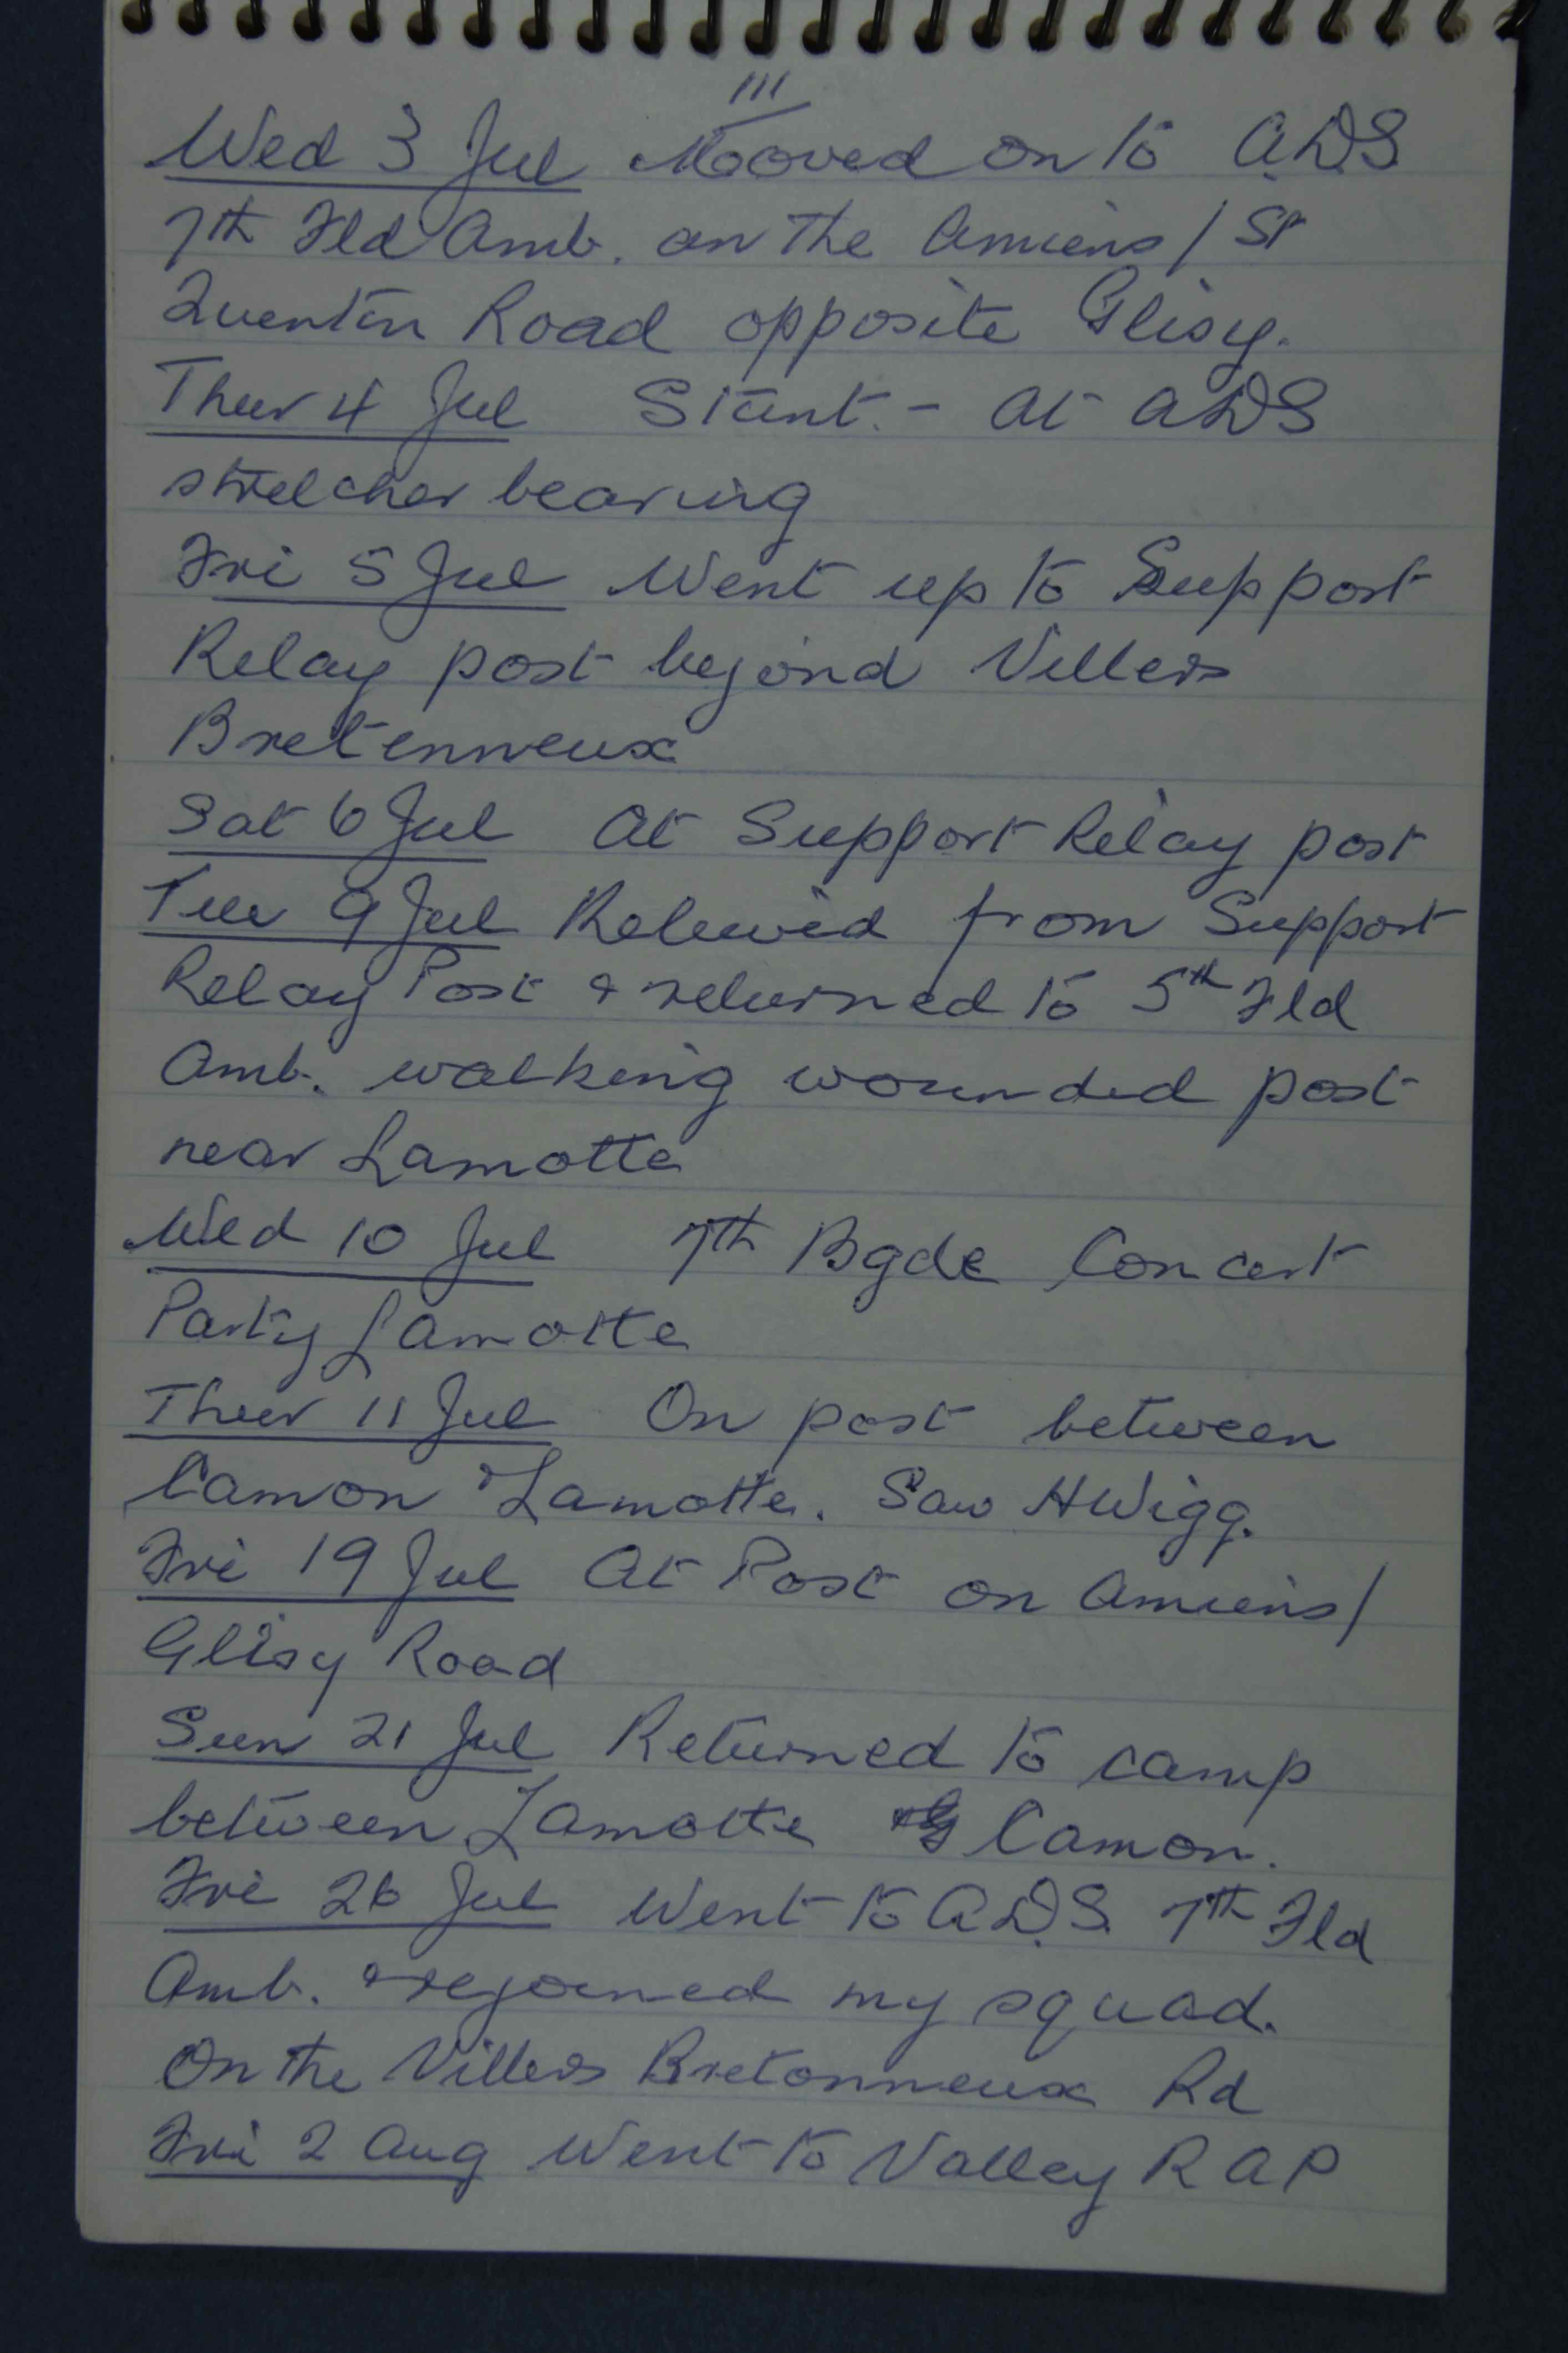 111
Wed 3 Jul Mooved on to A.D.S
7th Fld Amb. on the Amiens / St
Quentin Road opposite Glisy.
Thur 4 Jul Stunt. - At ADS
stretcher bearing
Fri 5 Jul Went up to Support
Relay post beyond Villers
Bretenneux
Sat 6 Jul At Support Relay post
Tue 9 Jul Releived from Support
Relay Post & returned to 5th Fld
Amb. walking wounded post
near Lamotte
Wed 10 Jul 7th Bgde Concert
Party Lamotte
Thur 11 Jul On post between
Camon & Lamotte. Saw HWigg.
Fri 19 Jul At Post on Amiens/
Glisy Road
Sun 21 Jul Returned to camp
between Lamotte & Camon.
Fri 26 Jul Went to A.D.S. 7th Fld
Amb. & rejoined my squad.
On the Villers Bretonneux Rd
Fri 2 Aug Went to Valley R A P